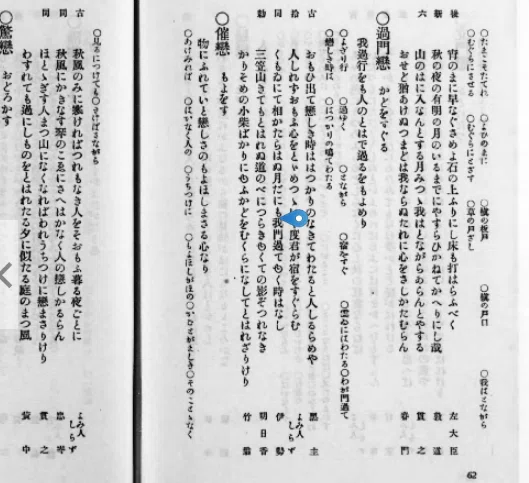 ○たまこそたてれ　○よひのまに　○槇の板戸　○槇の戸口　○我はとながら
○むぐらにさせる　○むぐらにとざす　○草の戸ざし
後　宵のまに早なぐさめよ石の上ふりにし床も打はらふべく　左大臣
新　秋の夜の有明の月のいるまでにやすらひかねてかへりにし哉　敦道
六　山のはに入なんとする月みつゝ我はとながらあらんとやする　貫之
おせど猶あけぬつまどは我ならぬたれに心をさしかたむらん　春門
○過門戀　かどをすぐる
我過行をも人のとはで過るをもよめり
○よぎり行　○過ゆく　○とながら　○宿をすぐ　○雲ゐにはわたる○わが門過て
○戀しき時は　○はつかりの鳴てわたる
古　おもひ出て戀しき時ははつかりのなきてわたると人しるらめや　黒主
拾　人しれずおもふ心をとゞめつゝ　度君が宿をすぐらむ　よみ人しらず
同　くもゐにて相かたらはぬ月だにも我門過てゆく時はなし　伊勢
勅　三笠山きてもとはれぬ道のべにつらきゆくての影ぞつれなき　明日香
かりそめの小柴ばかりにゆふかどをむぐらになしてとはれざりけり　竹
○催戀　もよをす
物にふれていと戀しさのもよほしまさる心なり
○あけぬれば　○はかなく人の　○うちつけに　○もよほしがほの　○そのことゝなく
62
○見るにつけても○そけばさながら
古　秋風のみに寒ければつれもなき人をぞおもふ暮る夜ごとに　よみ人しらず
同　秋風にかきなす琴のこゑにさへはかなく人の戀しかるらん　忠岑
同　ほとゝぎす人まつ山になくなればわれうちつけに戀まさりけり　貫之
わすれても過にしものをとはれたる夕に似たる庭のまつ風
○驚戀　おどろかす